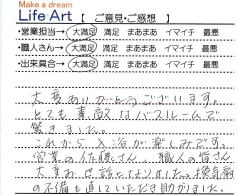 Make a dream
Life Art 【 ご意見・ご感想 】
・営業担当→ 大満足 満足 まあまあ イマイチ 最悪
・職人さん→ 大満足 満足 まあまあ イマイチ 最悪
・出来具合→ 大満足 満足 まあまあ イマイチ 最悪
大変ありがとうございます。
とても素敵なバスルームで
驚きました。
これから入浴が楽しみです。
営業の佐藤さん 職人の皆さん
大変お世話になりました。換気扇
の不備も直していただき助かりました。